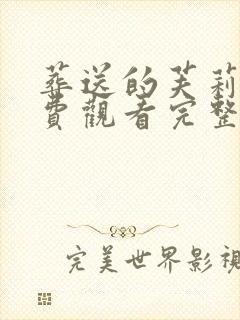 葬送的芙莉
費觀看完整
完美世界影視